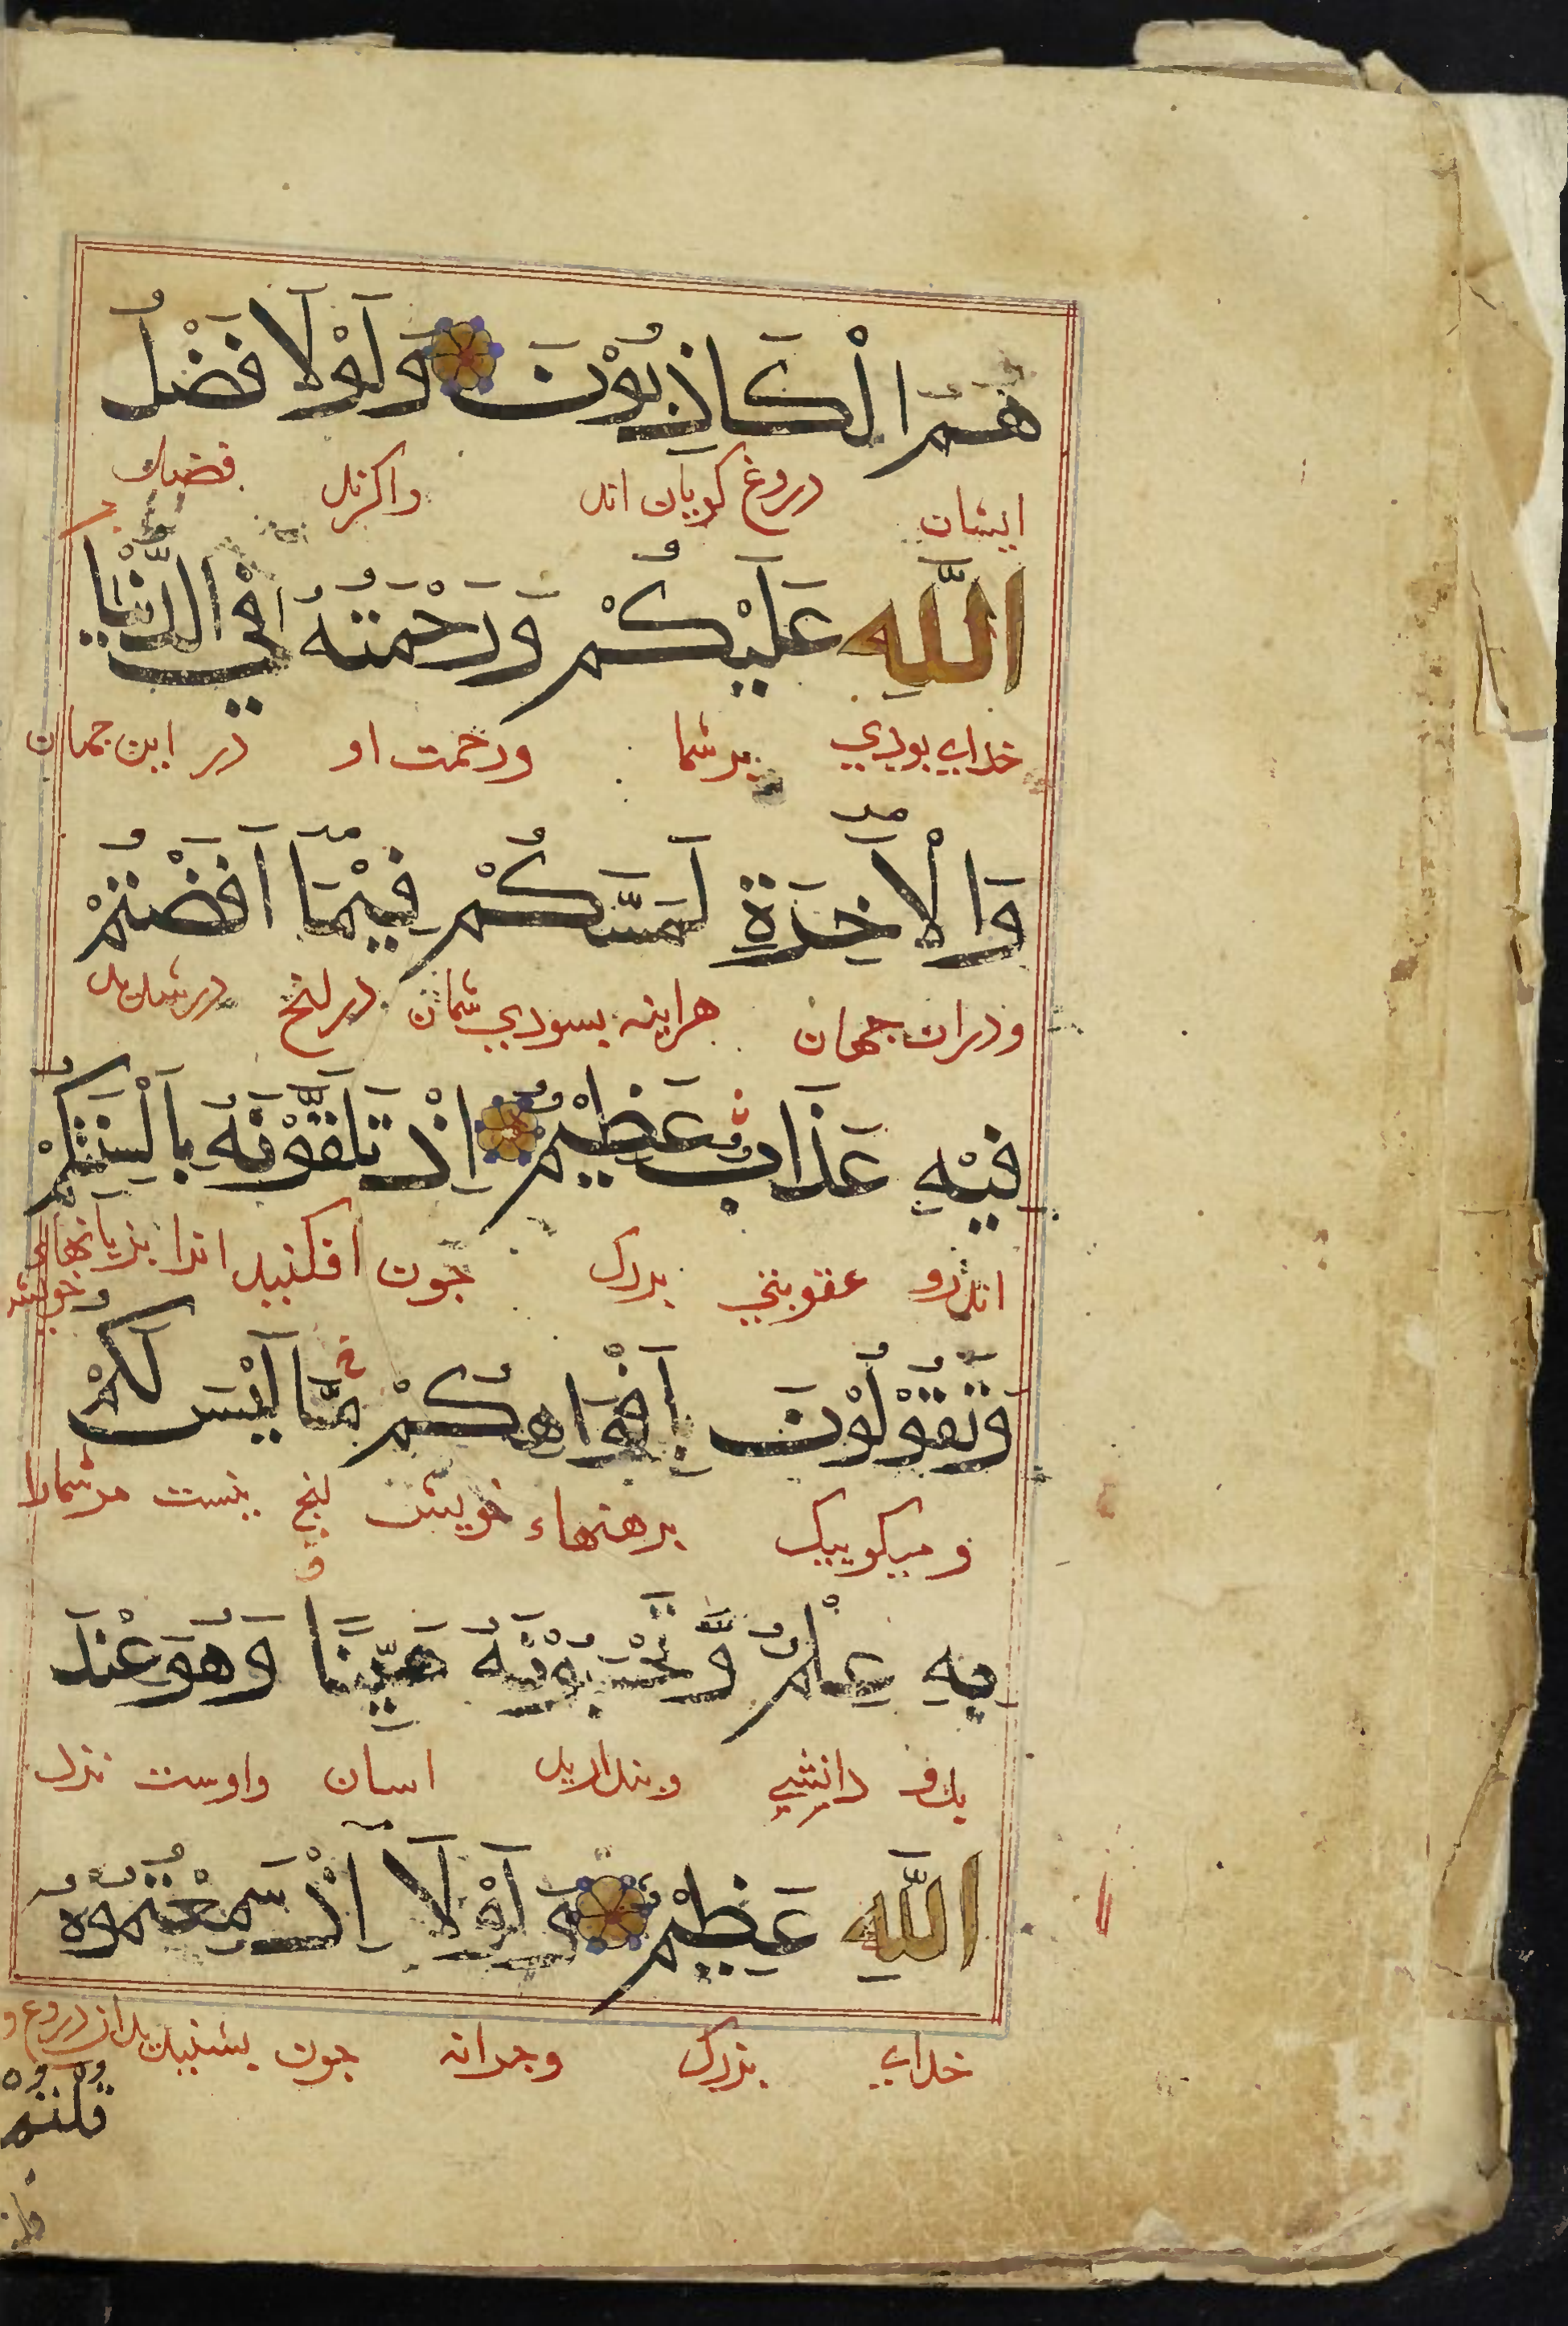 هُمُ الْكَاذِبُوْنَ وَلَوْلَا فَضْلُ
ايشان دروغ كويان اند واكرنه فضل
اللّٰهِ عَلَيْكُمْ وَرَحْمَتُهُ فِي الدُّنْيَا
خداي بودي بر شما ورحمت او در اين جهان
وَالْاٰخِرَةِ لَمَسَّكُمْ فِيْمَا اَفَضْتُمْ
ودران جهان هراينه بسودي شمان درانج در شديد
فِيْهِ عَذَابٌ عَظِيْمٌ اِذْ تَلَقَّوْنَهُ بِاَلْسِنَتِكُمْ
اندرو عقوبتي بزرك جون افكنيد انرا بزبانهاء خويش
وَتَقُوْلُوْنَ بِاَفْوَاهِكُمْ مَّا لَيْسَ لَكُمْ
و ميكوييد بدهنهاء خويش انج نيست مر شمارا
بِهِ عِلْمٌ وَّتَحْسَبُوْنَهُ هَيِّنًا وَهُوَ عِنْدَ
بدو دانشي وبنداريد اسان واوست نزد
اللّٰهِ عَظِيْمٌ وَلَوْلَا اِذْ سَمِعْتُمُوْهُ
خداي بزرك وجرانه جون بشنيديد ان دروغ و
قلتم